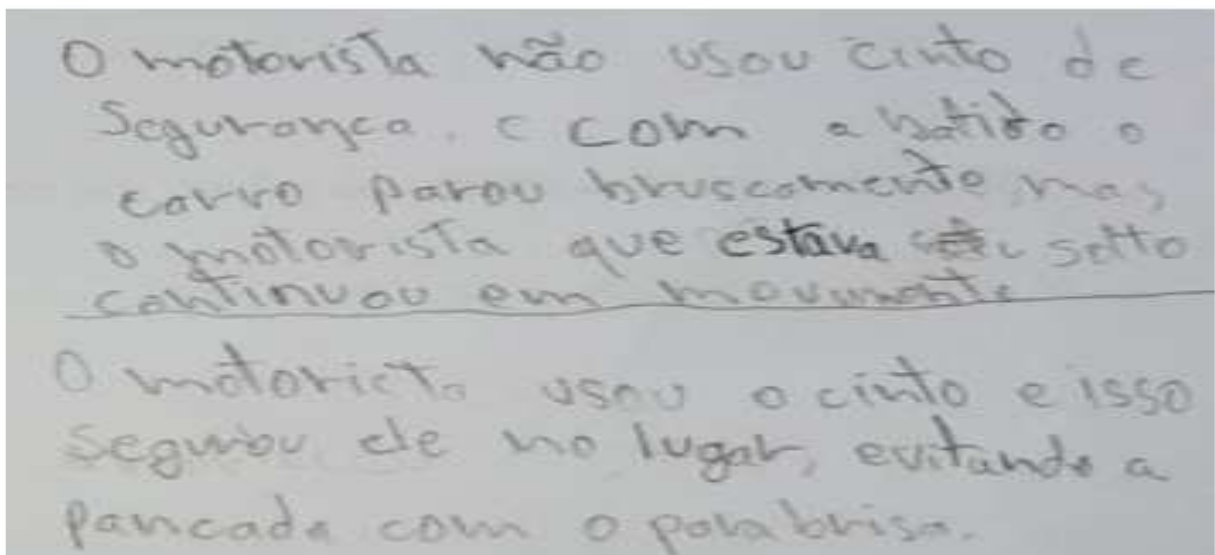 O motorista não usou cinto de
Segurança. e com a batida o
carro parou bruscamente, mas
o motorista que estava solto
continuou em movimento
O motorista usou o cinto e isso
segurou ele no lugar, evitando a
pancada com o parabrisa.